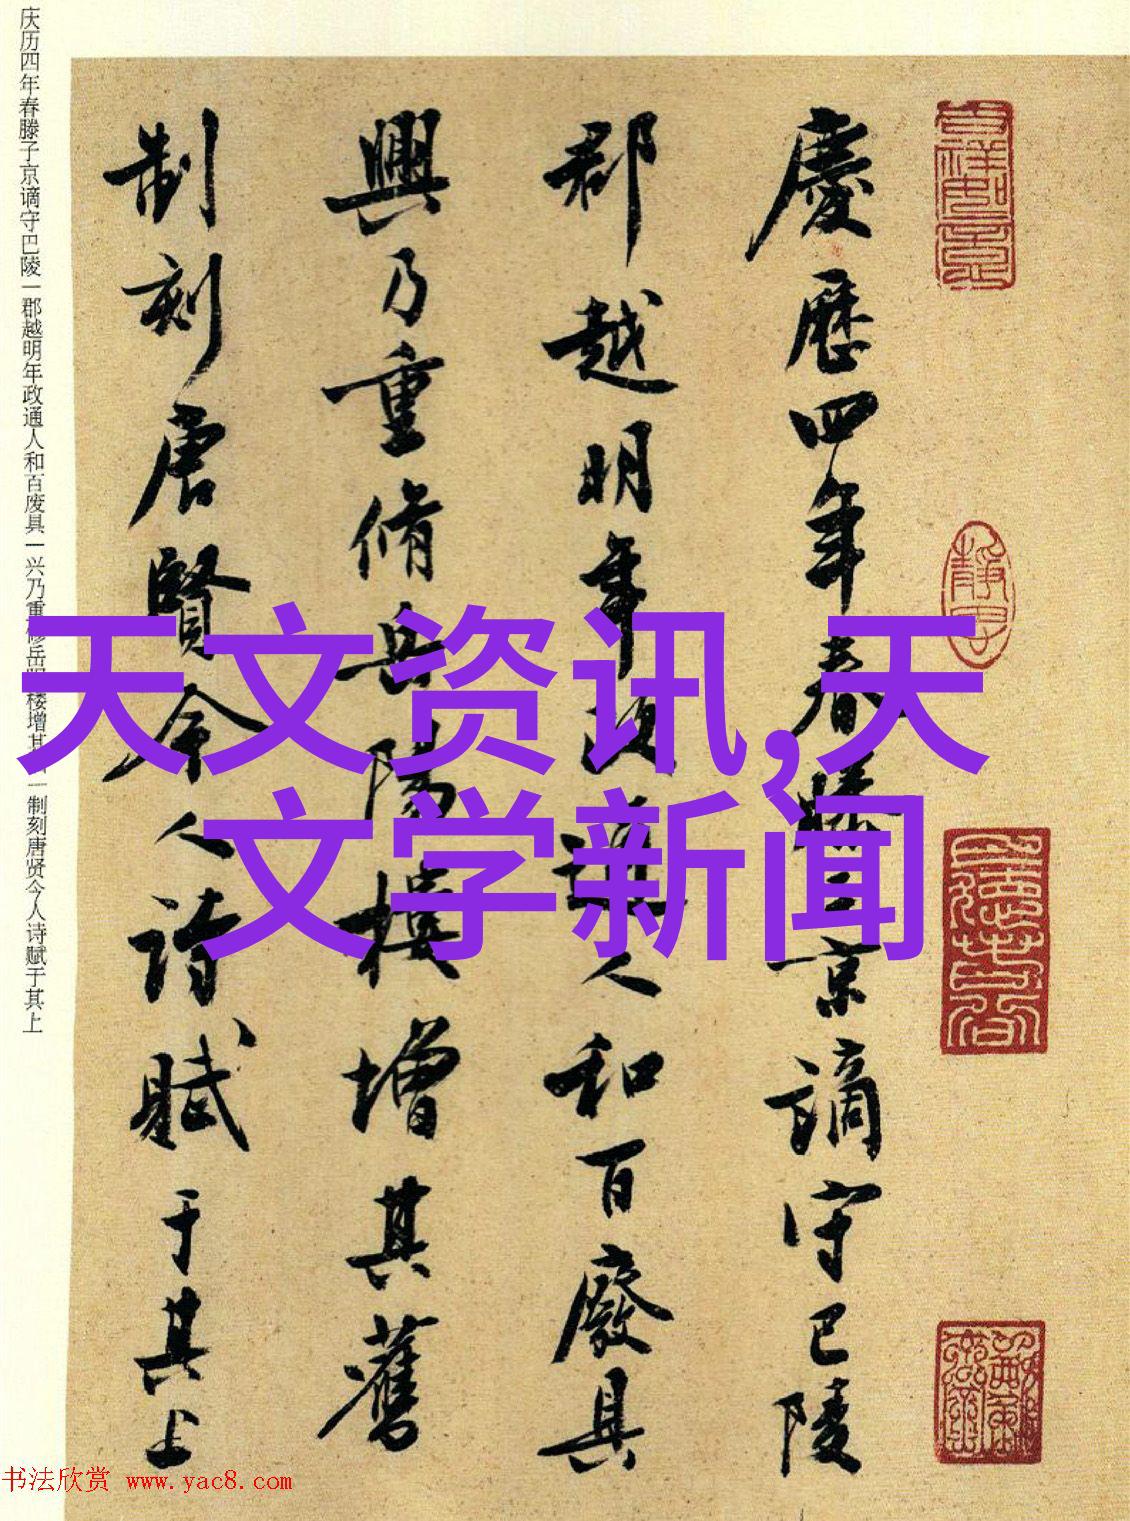 慶歷四年春滕子京謫守巴陵
郡越明年政通人和百廢具
興乃重脩岳陽樓增其舊
制刻唐賢今人詩賦于其上
庆历四年春滕子京谪守巴陵一郡越明年政通人和百废具一兴乃重修岳阳楼增其旧一制刻唐贤今人诗赋于其上
天文资讯,天
文学新闻
书法欣赏 www.yac8.com